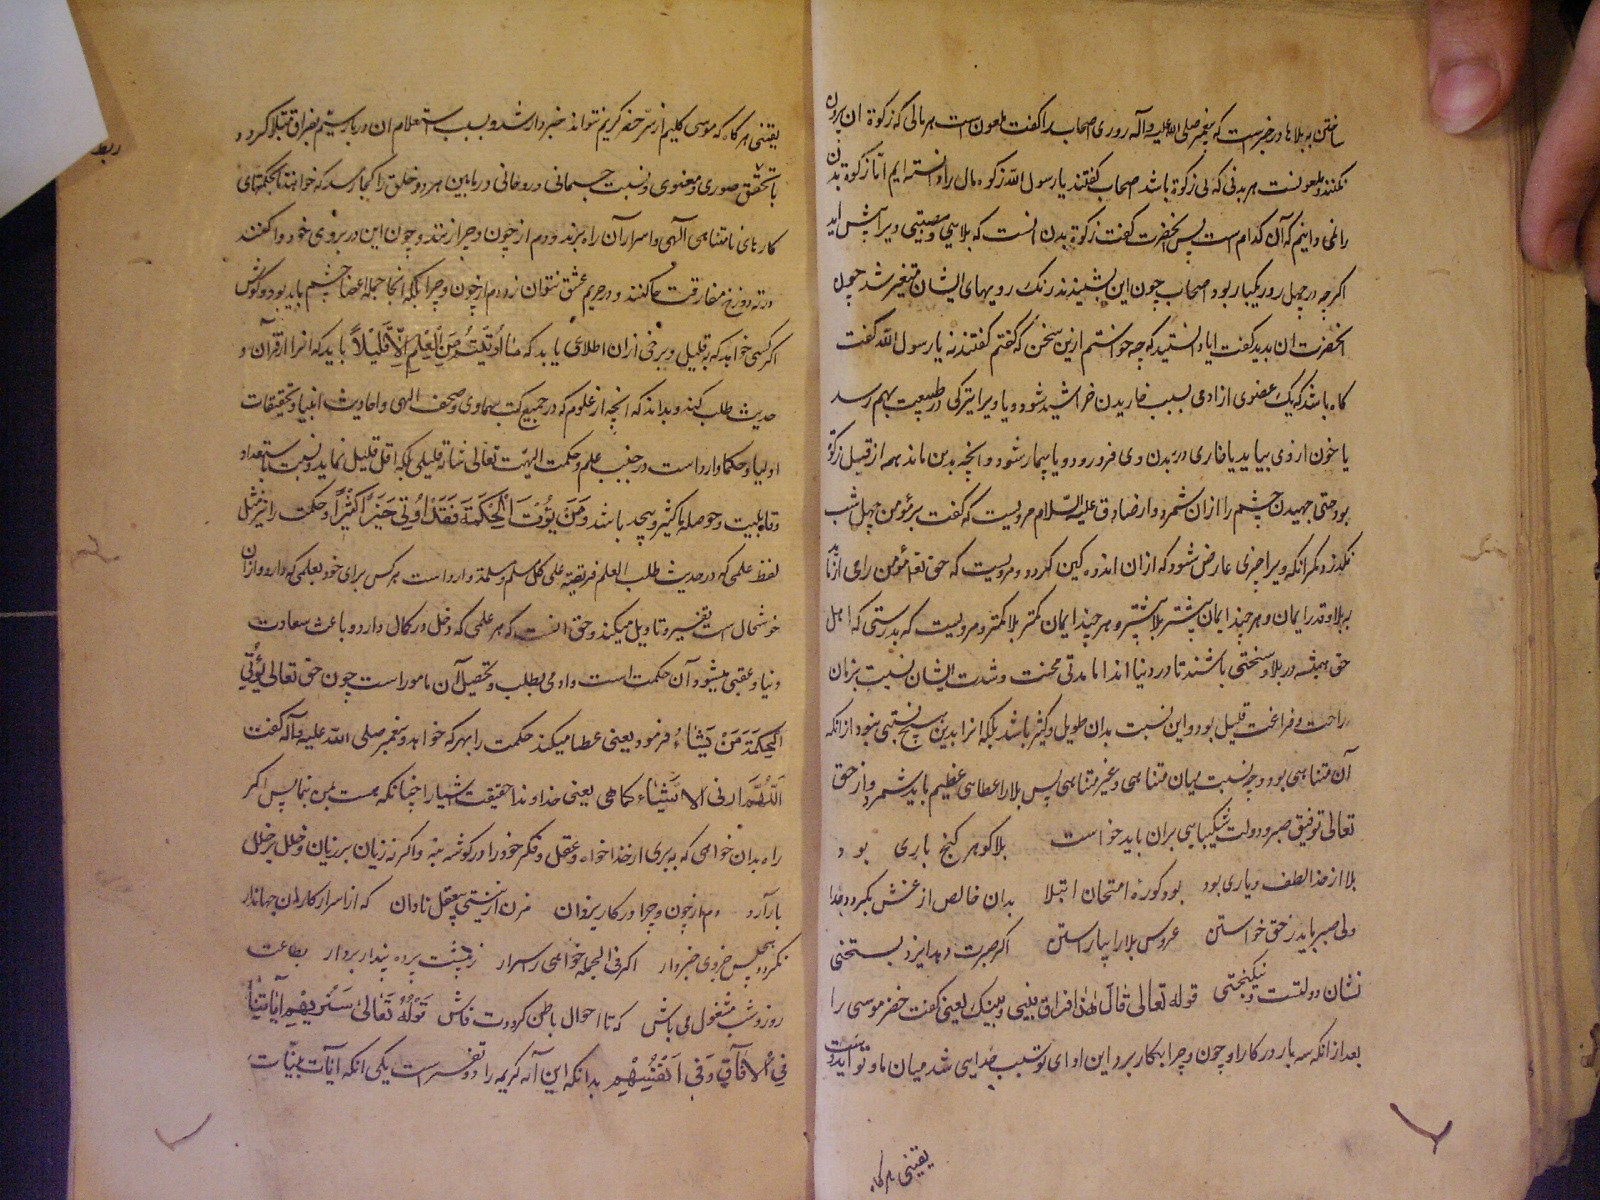 ساختن به بلاها در خبرست که پیغمبر صلی الله علیه و آله روزی اصحاب را گفت ملعون است هر مالی که زکوة ان بیرون
نکنند و ملعونست هر بدنی که بی زکوة باشد اصحاب گفتند یا رسول الله زکوه مال را دانسته ایم اما زکوة بدن
را نمی دانیم که آن کدام است پس آنحضرت گفت زکوة بدن آنست که بلایی و مصیبتی ویرا پیش اید
اگرچه در چهل روز یکبار بود اصحاب چون این بشنیدند رنک رویهای ایشان متغیر شد چون
انحضرت ان بدید گفت ایا دانستید که چه خواستم ازین سخن که گفتم گفتند نه یا رسول الله گفت
گاه باشد که یک عضوی از ادمی بسبب خاریدن خراشیده شود و یا ویرا تیرگی در طبیعت بهم رسد
یا خون از وی بیاید یا خاری در بدن وی فرو رود و یا بیمار شود و انچه بدین ماند همه از قبیل زکوة
بود حتی جهیدن چشم را از ان شمرد و از صادق علیه السلام مرویست که گفت بر مؤمن چهل شب
نکذرد مکر انکه ویرا چیزی عارض شود که از ان اندوهکین کردد و مرویست که حق تعم مؤمن را می ازماید
به بلا و قدر ایمان و هر چند ایمان بیشتر بلا بیشتر و هر چند ایمان کمتر بلا کمتر و مرویست که بدرستی که اهل
حق همیشه در بلا و سختی باشند تا در دنیا اند اما مدتی محنت و شدت ایشان نسبت بزمان
راحت و فراغت قلیل بود و این نسبت بدان طویل و کثیر باشد بلکه انرا بدین هیچ نسبتی نبود از انکه
آن متناهی بود و چه نسبت میان متناهی و غیر متناهی پس بلا را عطایی عظیم باید شمرد و از حق
تعالی توفیق صبر و دولت شکیبایی بران باید خواست بلا کوهر کنج باری بود
بلا از خدا لطف و یاری بود بود کوره امتحان ابتلا بدان خالص از غش بکردد جدا
ولی صبر باید ز حق خواستن عروس بلا را بیاراستن اکر صبرت دهد ایزد بسختی
نشان دولتست و نیکبختی قوله تعالی قال هذا فراق بینی و بینک یعنی گفت خضر موسی را
بعد از انکه سه بار در کار او چون و چرا بکار برد این او ای تو سبب جدایی شد میان ما و تو
یقینی هرکاه
یقینی هرکاه که موسی کلیم از سر خضر کریم نتواند خبردار شد و بسبب استعلام ان در بار سیم بفراق مبتلا کردد
با تحقق صوری و معنوی و نسبت جسمانی و روحانی در مابین هر دو خلق را کجا رسد که خواهند تا بحکمتهای
کارهای نامتناهی آلهی و اسرار آن راه برند و دم از چون و چرا زنند و چون این در بر روی خود وا کنند
در ته دوزخ مفارقت جا کنند و در حریم عشق نتوان زد دم از چون و چرا بلکه انجا جمله اعضا چشم باید بود و کوش
اکر کسی خواهد که به قلیل و برخی از ان اطلاع یابد که مَا اُوتیتُم مِنَ الْعِلمِ اِلاّ قَلیلاً باید که انرا از قرآن و
حدیث طلب کند و بداند که انچه از علوم که در جمیع کتب سماوی و صحف الهی و احادیث انبیا و تحقیقات
اولیا و حکما وارد است در جنب علم و حکمت الهیت تعالی شانه قلیلی بلکه اقل قلیل نماید و نسبت باستعداد
و قابلیت و حوصله ما کثیر و بیحد باشد وَ مَن یُؤْتَ الْحِکْمَةَ فَقَدْ اُوتِیَ خَیْراً کَثیراً و حکمت را نیز مثل
لفظ علمی که در حدیث طلب العلم فریضة علی کل مسلم و مسلمة وارد است هر کس برای خود بعلمی که دارد و از ان
خوشحال است تفسیر و تاویل میکند و حق انست که هر علمی که دخل در کمال دارد و باعث سعادت
دنیا و عقبی میشود آن حکمت است و ادمی بطلب و تحصیل آن مامور است چون حق تعالی یُؤْتِی
الْحِکمَةَ مَنْ یَشَاءُ فرمود یعنی عطا میکند حکمت را بهر که خواهد و پیغمبر صلی الله علیه و آله گفت
اَللّهُمَّ ارنی الاَشْیَاء کما هی یعنی خداوندا حقیقت اشیا را چنانکه هست بمن بنما پس اکر
راه بدان خواهی که به بری از خدا خواه و عقل و فکر خود را در کوشه بنه واکرنه زیان بر زیان و خلل بر خلل
بار آرد دم از چون و چرا در کار یزدان مزن از نیستی بیعقل نادان که از اسرار کاران جهاندار
نکردد بیجکس جزوی خبردار اکر فی الجمله خواهی رسرار ز پشت پرده پندار بردار بطاعت
روز و شب مشغول می باش که تا احوال باطن کرددت فاش قَوْلُهُ تَعالی سَنُریهِمْ ایَاتِنَا
فِی الافَاقِ وَ فی اَنْفُسِهِمْ بدانکه این آیه کریمه را دو تفسیر است یکی انکه ایات بینات
ربط